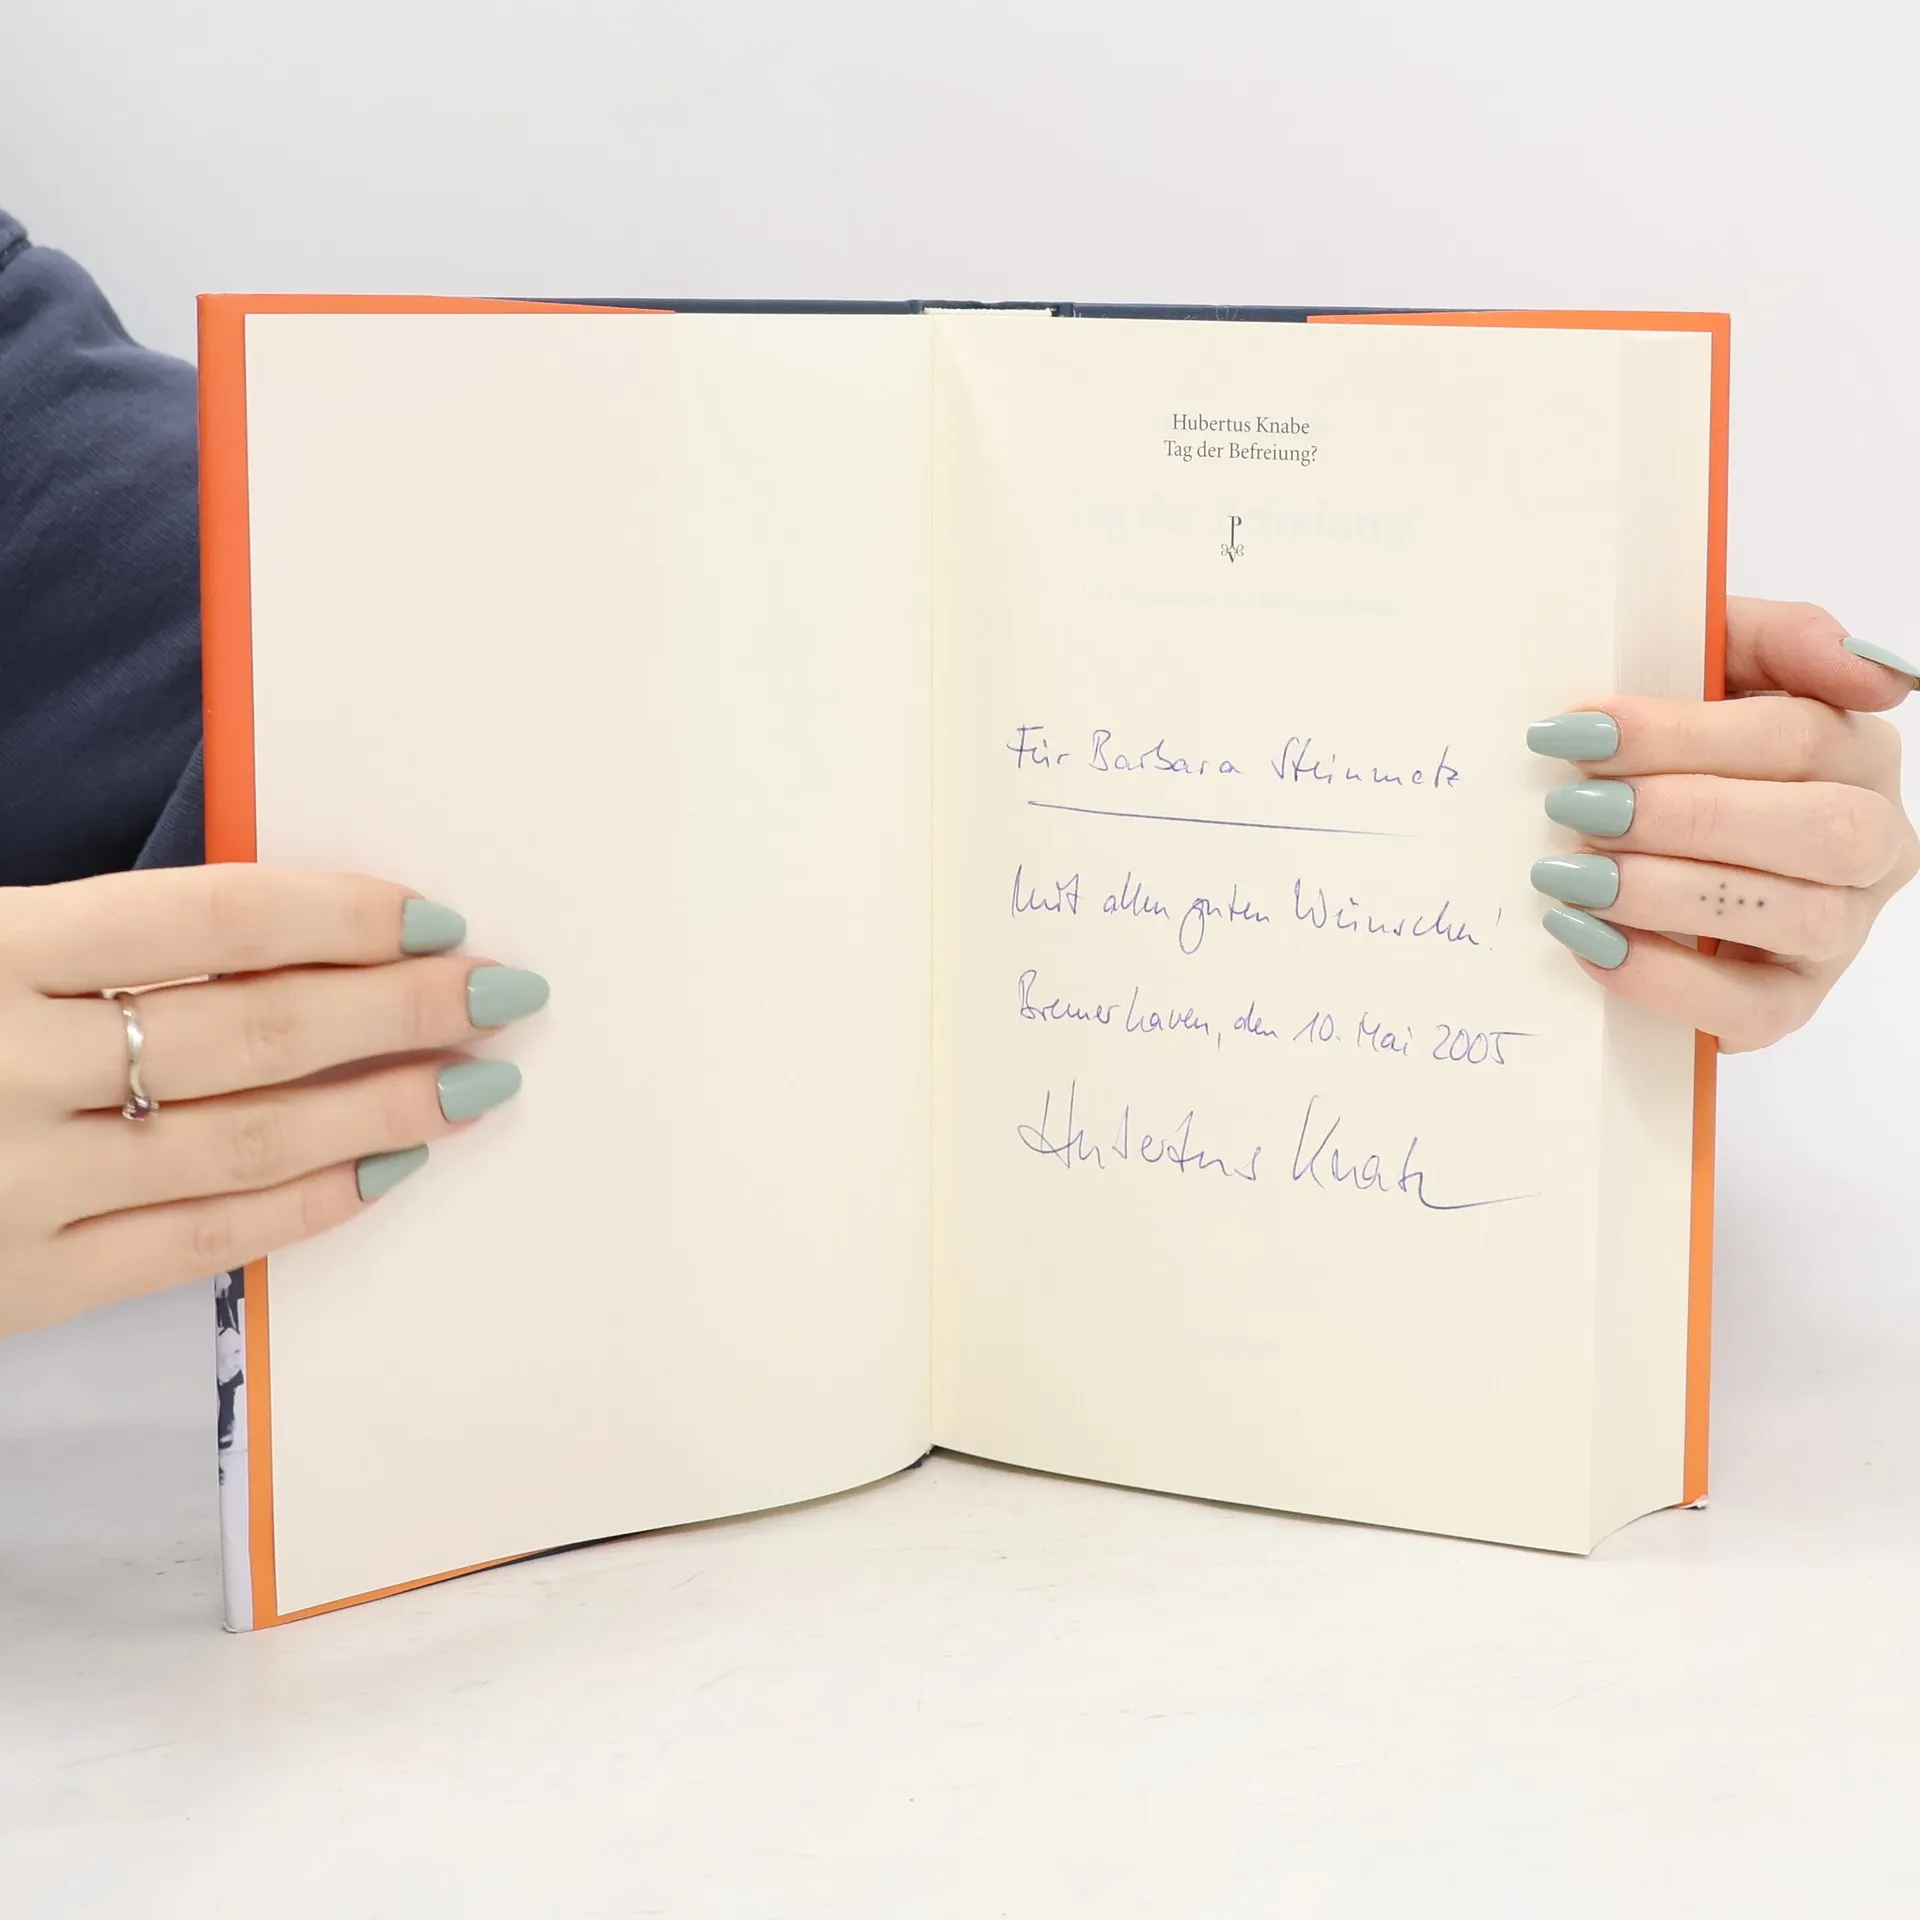 Hubertus Knabe
Tag der Befreiung?
P
V
Für Barbara Steinmetz
Mit allen guten Wünschen!
Bremerhaven, den 10. Mai 2005
Hubertus Knabe